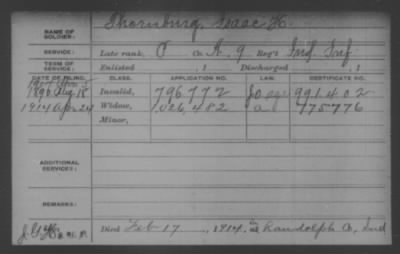 NAME OF SOLDIER: Thornburg, Isaac H.
SERVICE: Late rank, P Co. A, 9 Reg't Ind Inf
TERM OF SERVICE: Enlisted , 1 Discharged , 1
DATE OF FILING. CLASS. APPLICATION NO. LAW. CERTIFICATE NO.
1890 Aug 15 Invalid, 796,772 991402
1914 Apr 24 Widow, 1,026,482 775776
Minor,
ADDITIONAL SERVICES:
REMARKS:
Died Feb 17, 1914, at Randolph Co, Ind